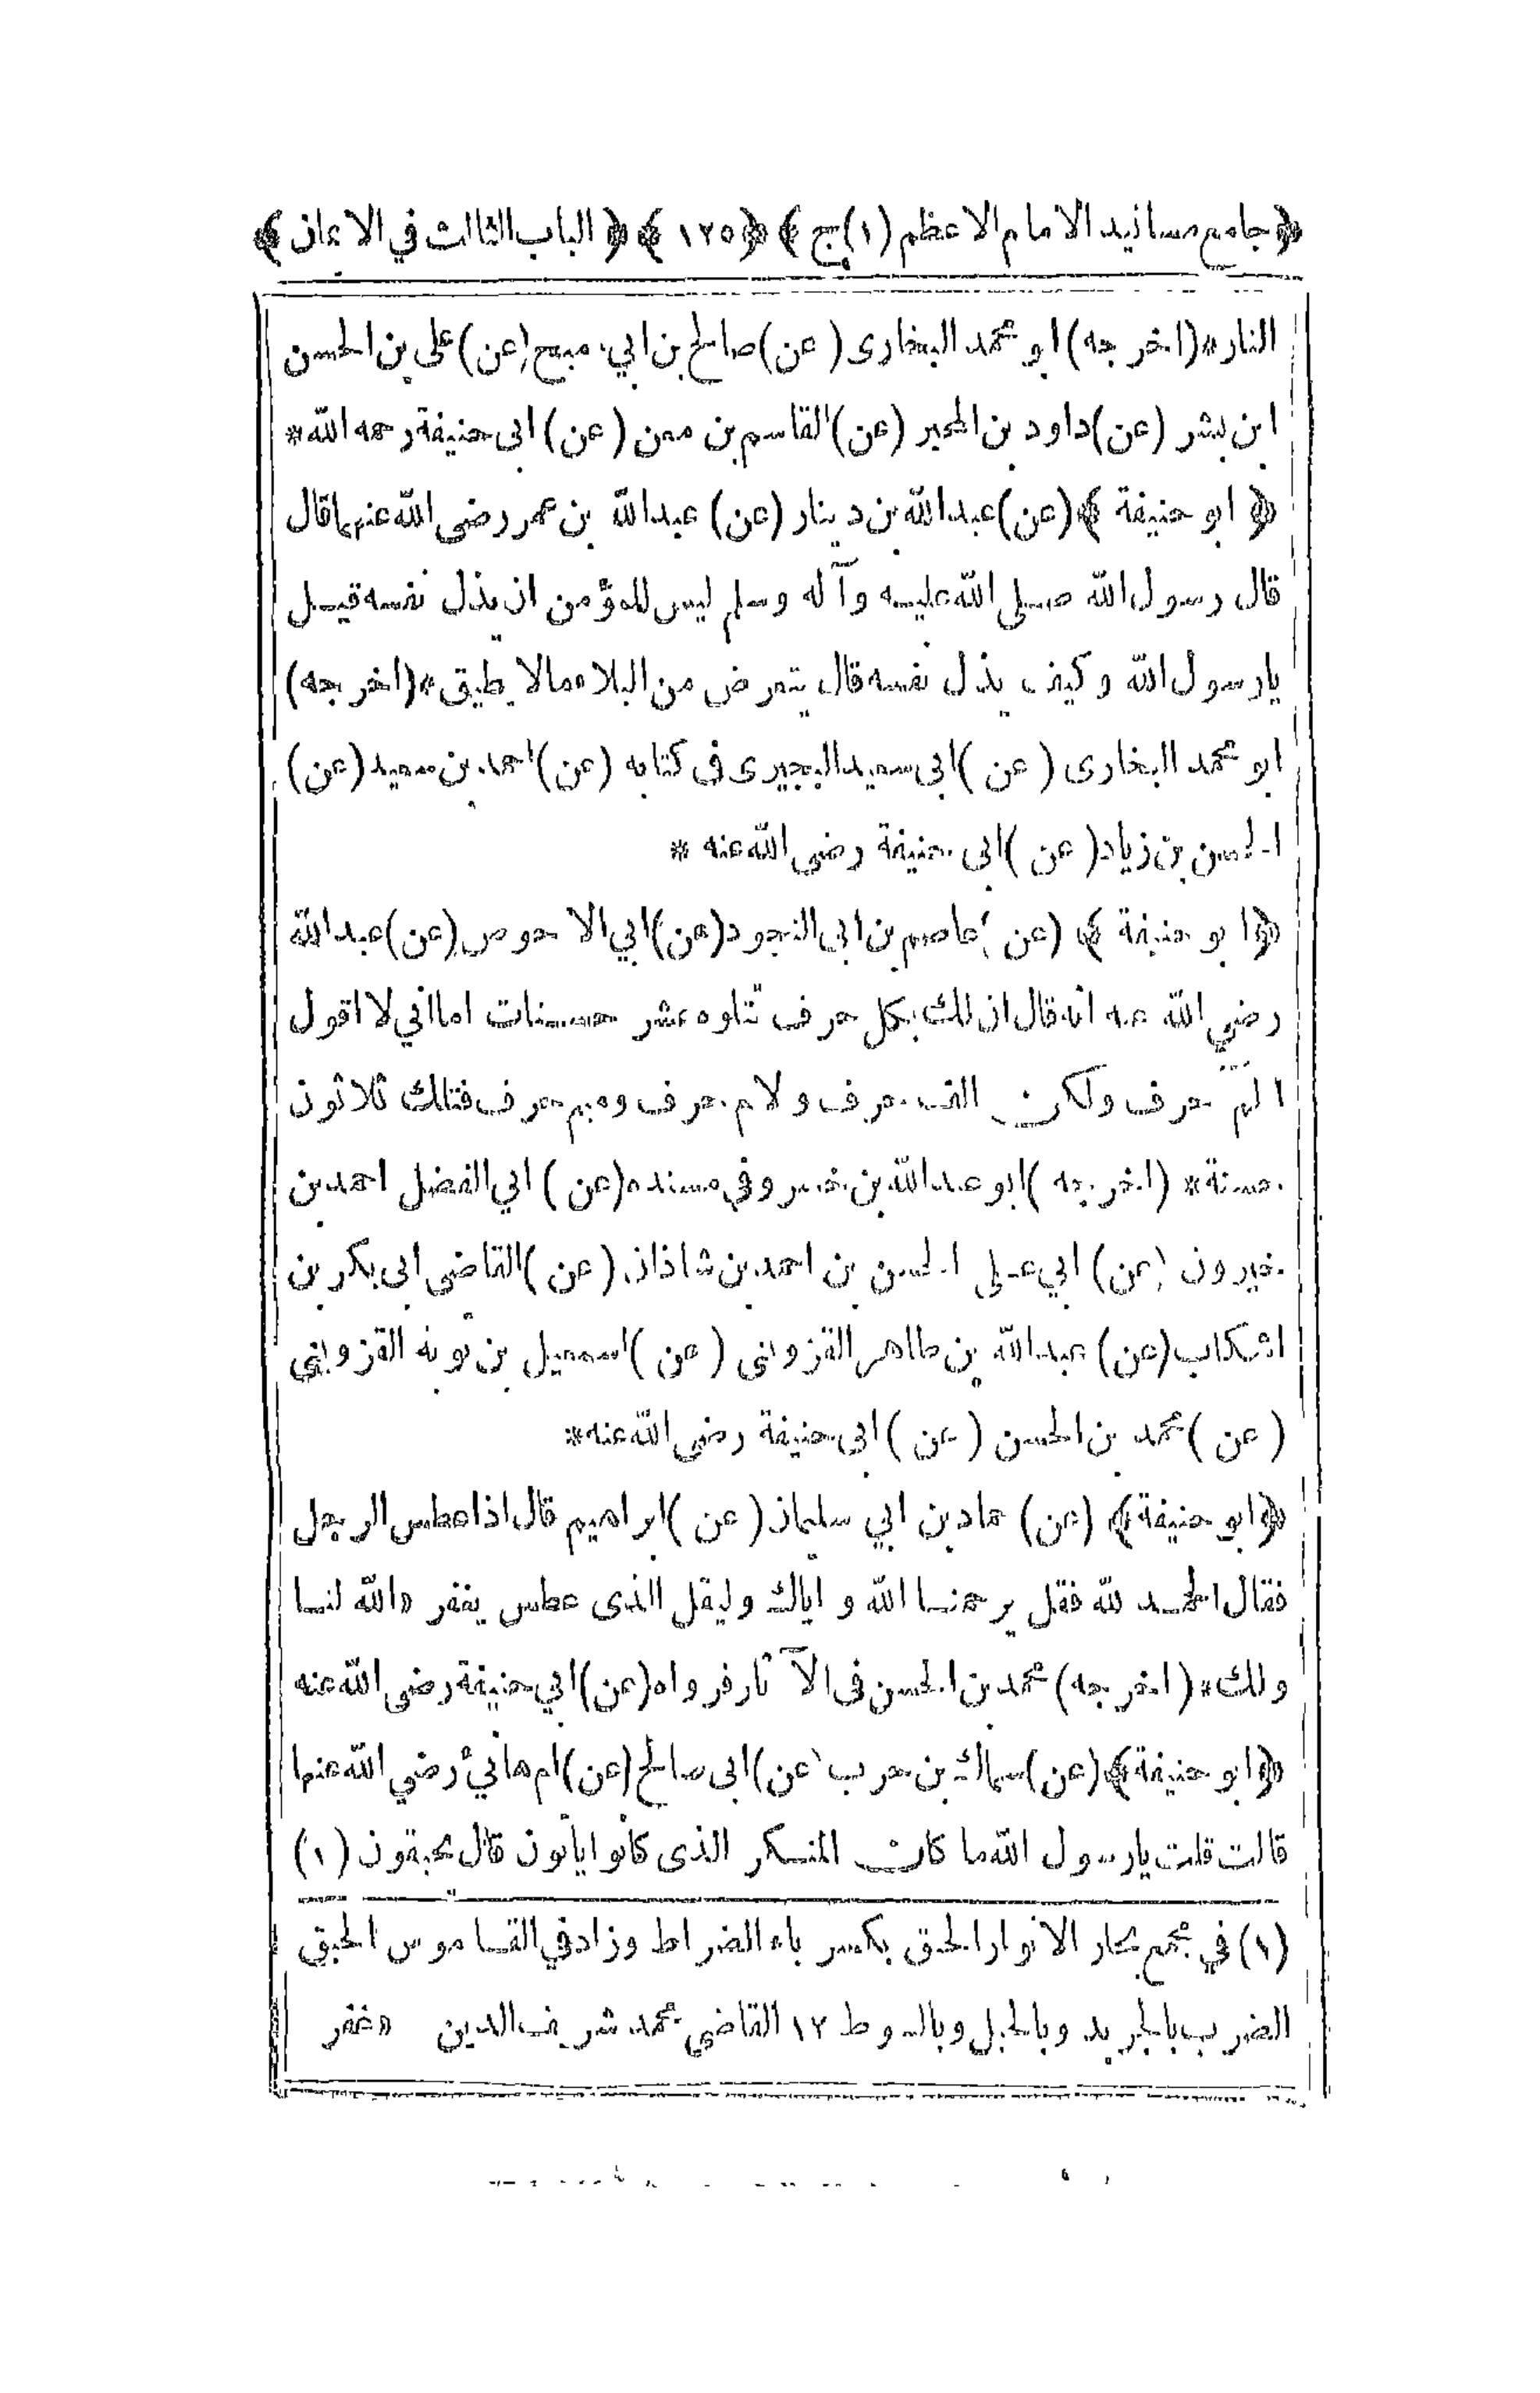 ﴿جامع مسانيد الامام الاعظم (١)ج﴾ ﴿١٢٥﴾ ﴿الباب الثالث في الايمان﴾
النار*(اخرجه) ابو محمد البخارى (عن) صالح بن ابي (عن) على بن الحسن
ابن بشر (عن) داود بن المحبر (عن) القاسم بن معن (عن) ابى حنيفة رحمه الله*
﴿ابو حنيفة﴾ (عن) عبد الله بن دينار (عن) عبد الله بن عمر رضى الله عنهما قال
قال رسول الله صلى الله عليه وآله وسلم ليس للمؤمن ان يذل نفسه قيل
يا رسول الله وكيف يذل نفسه قال يتعرض من البلاء ما لا يطيق*(اخرجه)
ابو محمد البخارى (عن) ابى سعيد البجيرى فى كتابه (عن) احمد بن سعيد (عن)
الحسن بن زياد (عن) ابى حنيفة رضى الله عنه *
﴿ابو حنيفة﴾ (عن) عاصم بن ابى النجود (عن) ابي الاحوص (عن) عبد الله
رضي الله عنه انه قال ان لك بكل حرف تتلوه عشر حسنات اما انى لا اقول
الم حرف ولكن الف حرف ولام حرف وميم حرف فتلك ثلاثون
حسنة* (اخرجه) ابو عبد الله بن خسرو فى مسنده (عن) ابي الفضل احمد بن
خيرون (عن) ابي على الحسن بن احمد بن شاذان (عن) القاضى ابى بكر بن
اشكاب (عن) عبد الله بن طاهر القزوينى (عن) اسمعيل بن توبة القزوينى
(عن) محمد بن الحسن (عن) ابى حنيفة رضى الله عنه*
﴿ابو حنيفة﴾ (عن) حماد بن ابي سليمان (عن) ابراهيم قال اذا عطس الرجل
فقال الحمد لله فقل يرحمنا الله واياك وليقل الذى عطس يغفر الله لنا
ولك* (اخرجه) محمد بن الحسن فى الآثار فرواه (عن) ابي حنيفة رضى الله عنه
﴿ابو حنيفة﴾ (عن) سماك بن حرب (عن) ابى صالح (عن) ام هانئ رضي الله عنها
قالت قلت يا رسول الله ما كان المنكر الذى كانوا يأتون قال يحبقون (١)
(١) في مجمع بحار الانوار الحبق بكسر باء الضراط وزاد في القاموس الحبق
الضرب بالجريد وبالحبل وبالسوط ١٢ القاضى محمد شريف الدين غفر